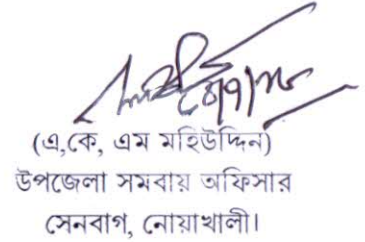 (এ,কে, এম মহিউদ্দিন)
উপজেলা সমবায় অফিসার
সেনবাগ, নোয়াখালী।